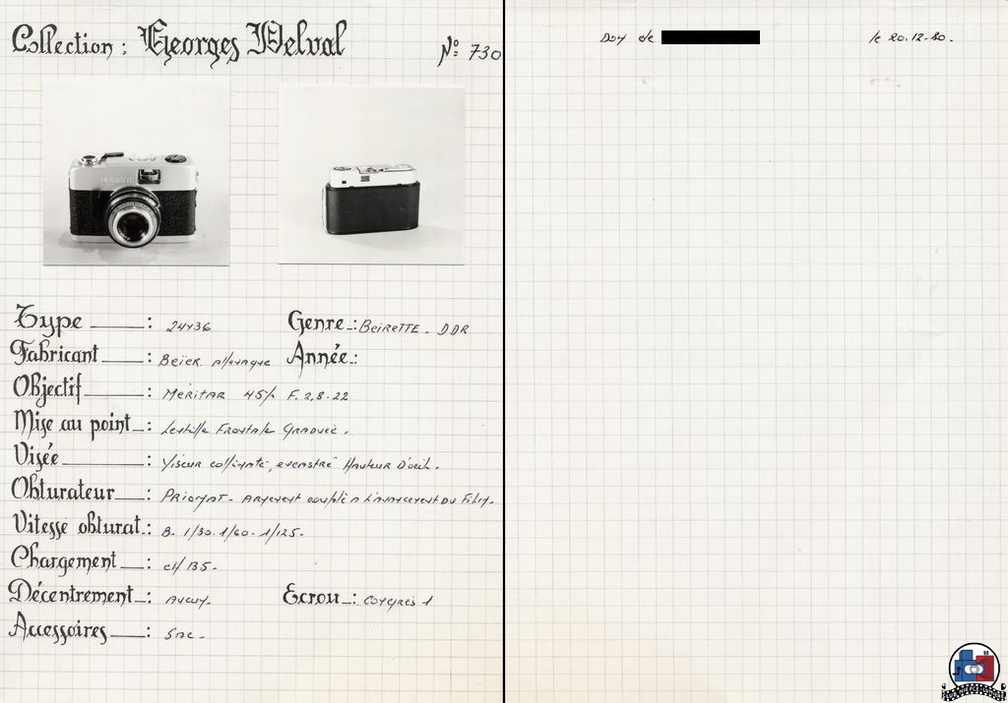 Collection : Georges Delval
N° 730
Type : 24x36
Genre : BEIRETTE - DDR
Fabricant : Beier. Allemagne
Année :
Objectif : MERITAR 45% F. 2,8-22
Mise au point : Lentille Frontale GRADUÉE.
Visée : Viseur collimaté, excentré Hauteur D'oeil.
Obturateur : PRIOMAT - Armement couplé à L'avancement DU Film.
Vitesse obturat. : B. 1/30. 1/60 - 1/125.
Chargement : ch/135 -
Décentrement : Aucun.
Ecrou : Congrès 1
Accessoires : SAC -
Don de
le 20.12-80.